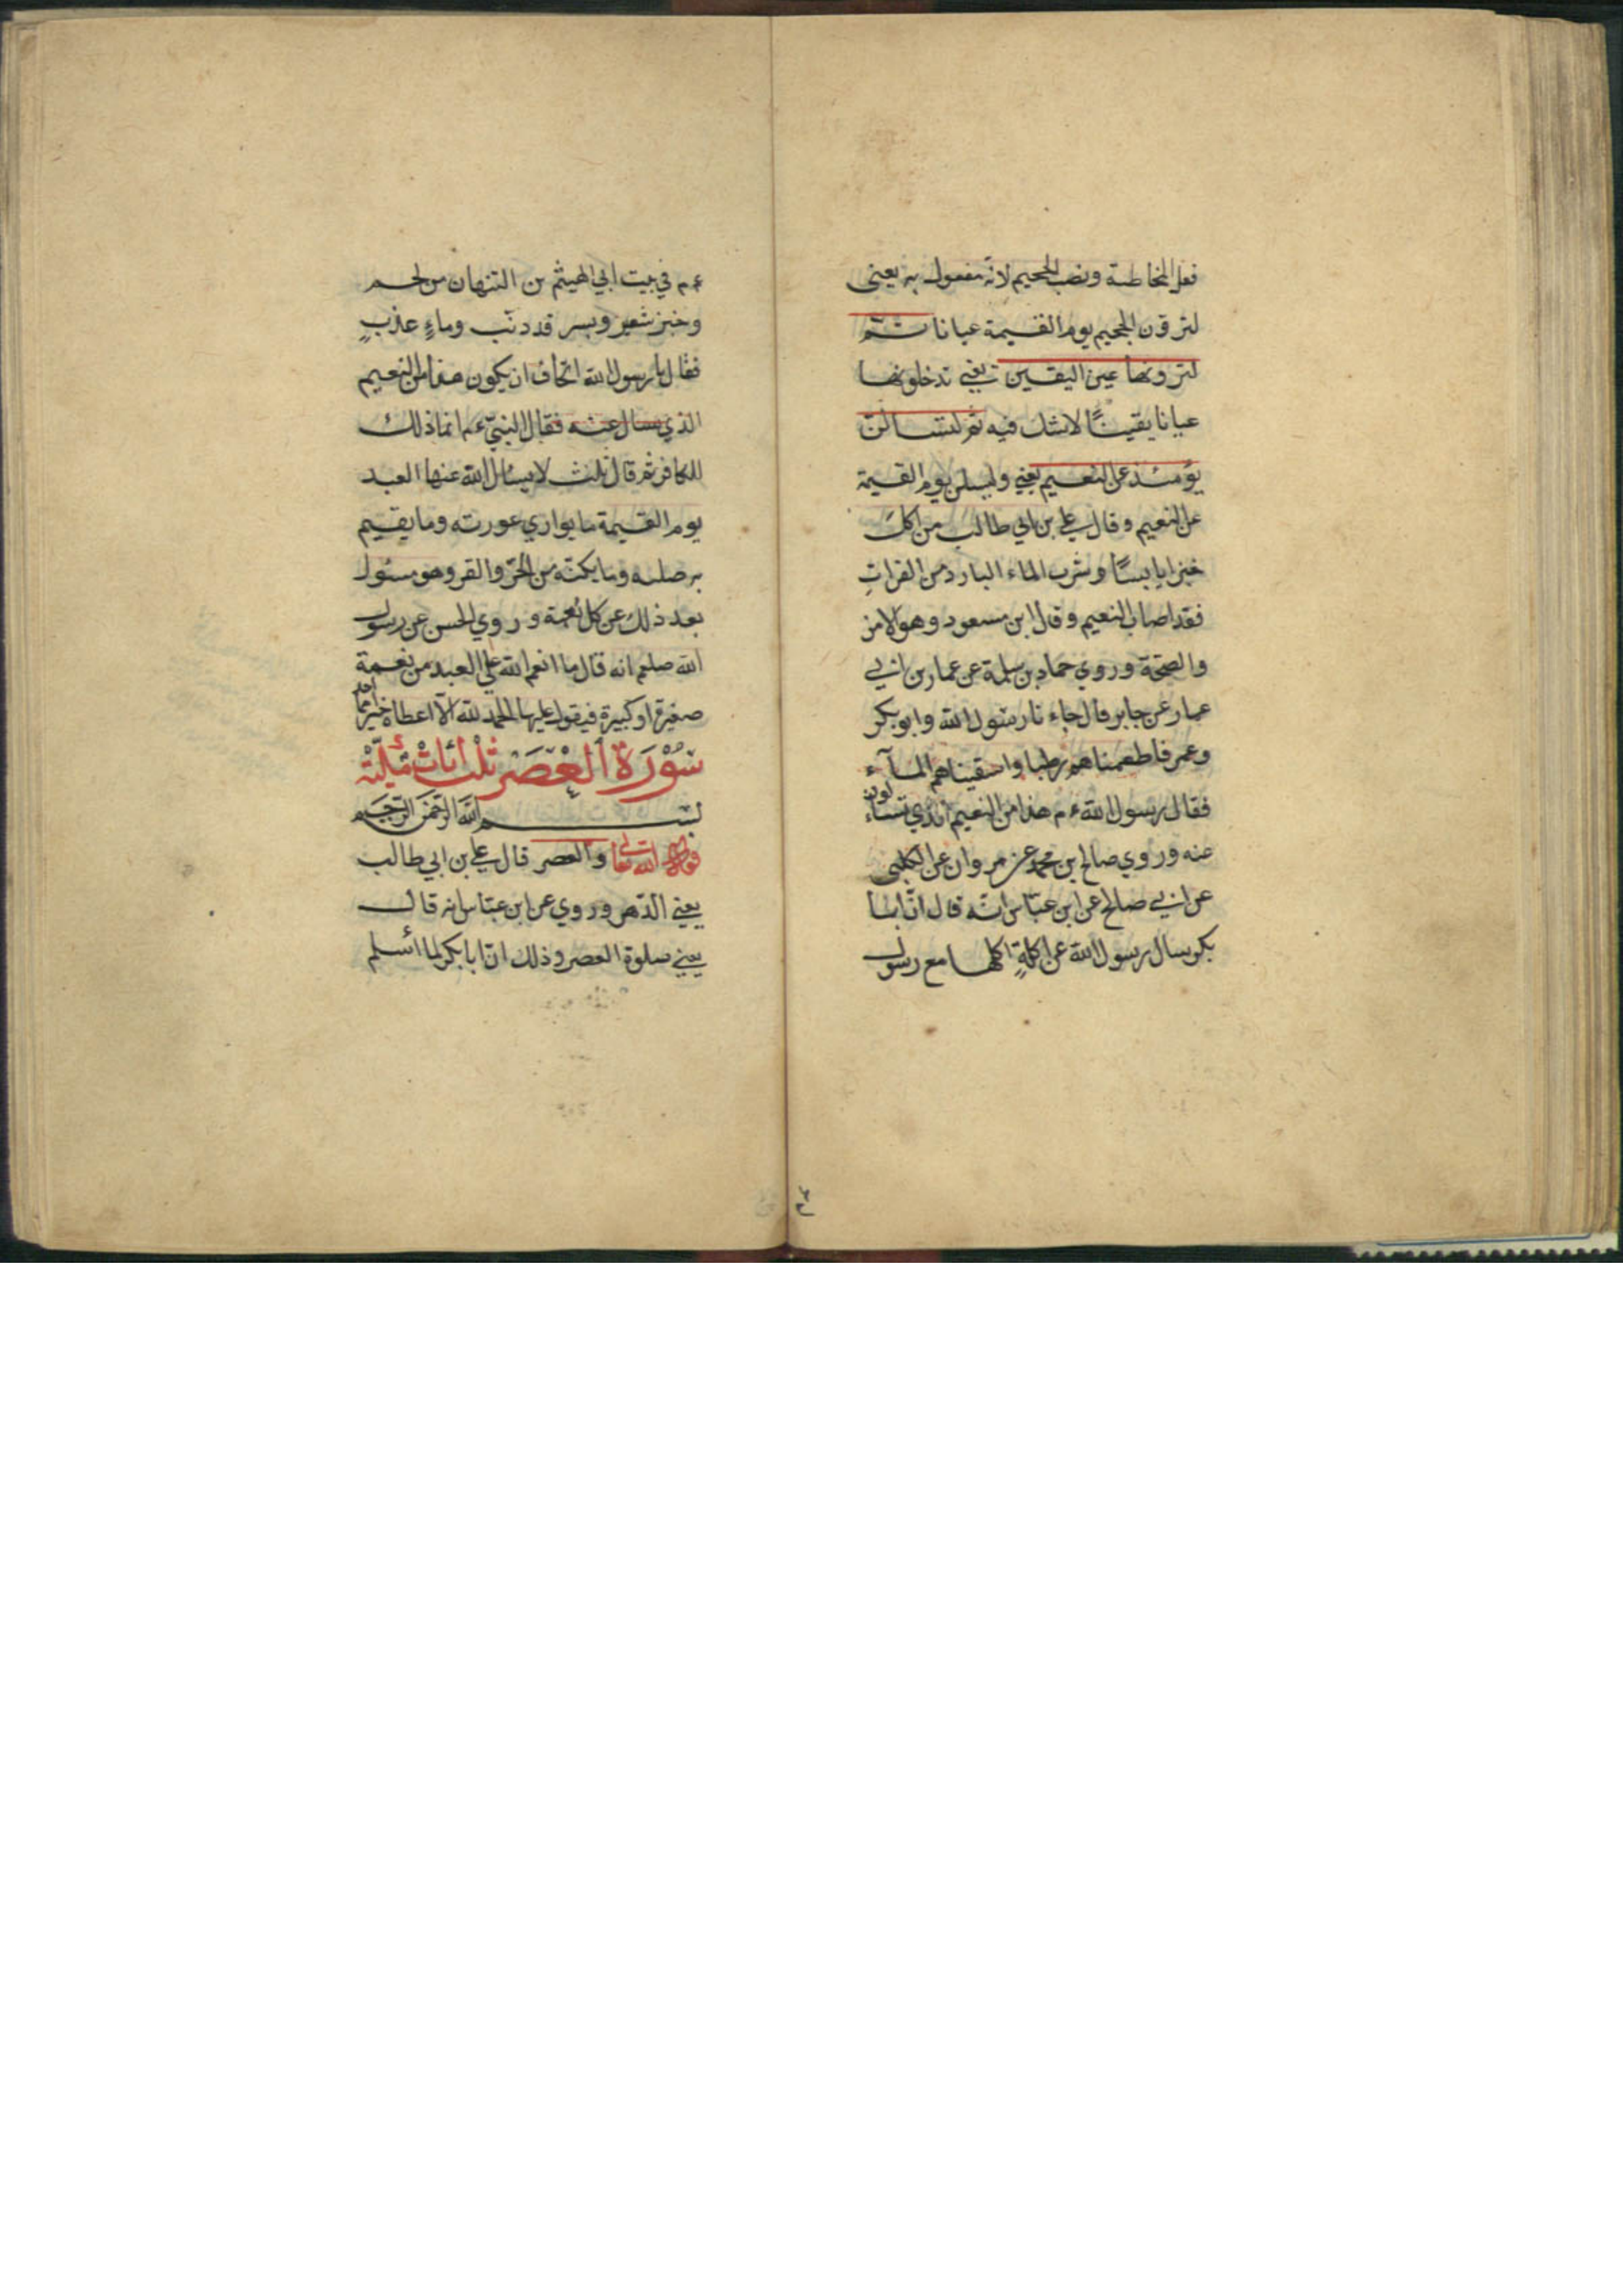 فعل المخاطبة ونصب الجحيم لانه مفعول به يعنى
لترون الجحيم يوم القيمة عيانا ثم
لترونها عين اليقين يعني تدخلونها
عيانا يقينًا لا شك فيه ثم لتسالن
يومئذ عن النعيم يعني وليسلن يوم القيمة
عن النعيم وقال علي بن ابي طالب من اكل
خبزا يابسًا وشرب الماء البارد من الفرات
فقد اصاب النعيم وقال ابن مسعود وهو الامن
والصحّة وروي حماد بن سلمة عن عمار بن ابي
عمار عن جابر قال جاء نا رسول الله وابو بكر
وعمر فاطعمناهم رطبا واسقيناهم المآء
فقال رسول الله ءم هذا من النعيم الذي تسئالون
عنه وروي صالح ابن محمد عن مروان عن الكلبى
عن ابي صالح عن ابن عباس انّه قال انّ ابا
بكر سال رسول الله عن اكلةٍ اكلها مع رسول
ءم في بيت ابي الهيثم بن التيهان من لحم
وخبز شعير وبسر قد دنّب وماءٍ عذبٍ
فقال يا رسول الله اتخاف ان يكون هذا من النعيم
الذي يسال عنه فقال النبيّ ءم انما ذلك
للكافر ثم قال ثلث لا يسئال الله عنها العبد
يوم القيمة ما يواري عورته وما يقيم
به صلبه وما يكنّه من الحرّ والقر وهو مسئول
بعد ذلك عن كل نعمة وروي الحسن عن رسول
الله صلعم انه قال ما انعم الله على العبد من نعمة
صغيرة او كبيرة فيقول عليها الحمد لله الّا اعطاه خيرا مما اخذ
سُوْرَةُ العْصَر ثلث ايات مكيّة
بسم الله الرّحمَن الرّحيم
قوله الله تعالى والعصر قال علي بن ابي طالب
يعني الدّهر وروي عن ابن عبّاس انه قال
يعني صلوة العصر وذلك انّ ابا بكر لما اسلم